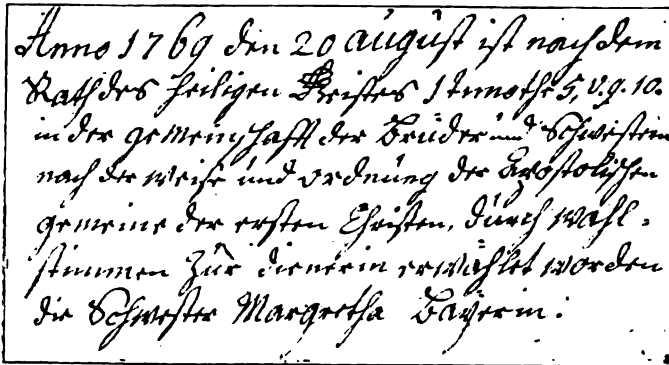 Anno 1769 den 20 august ist nach dem
Rath des heiligen Geistes 1 Timothe 5, v. 9. 10.
in der gemeinschafft der Brüder und Schwestern
nach der weise und ordnung der Apostolischen
gemeine der ersten Christen, durch wahl-
stimmen zur dienerin erwählet worden
die Schwester Margretha Bayerin: